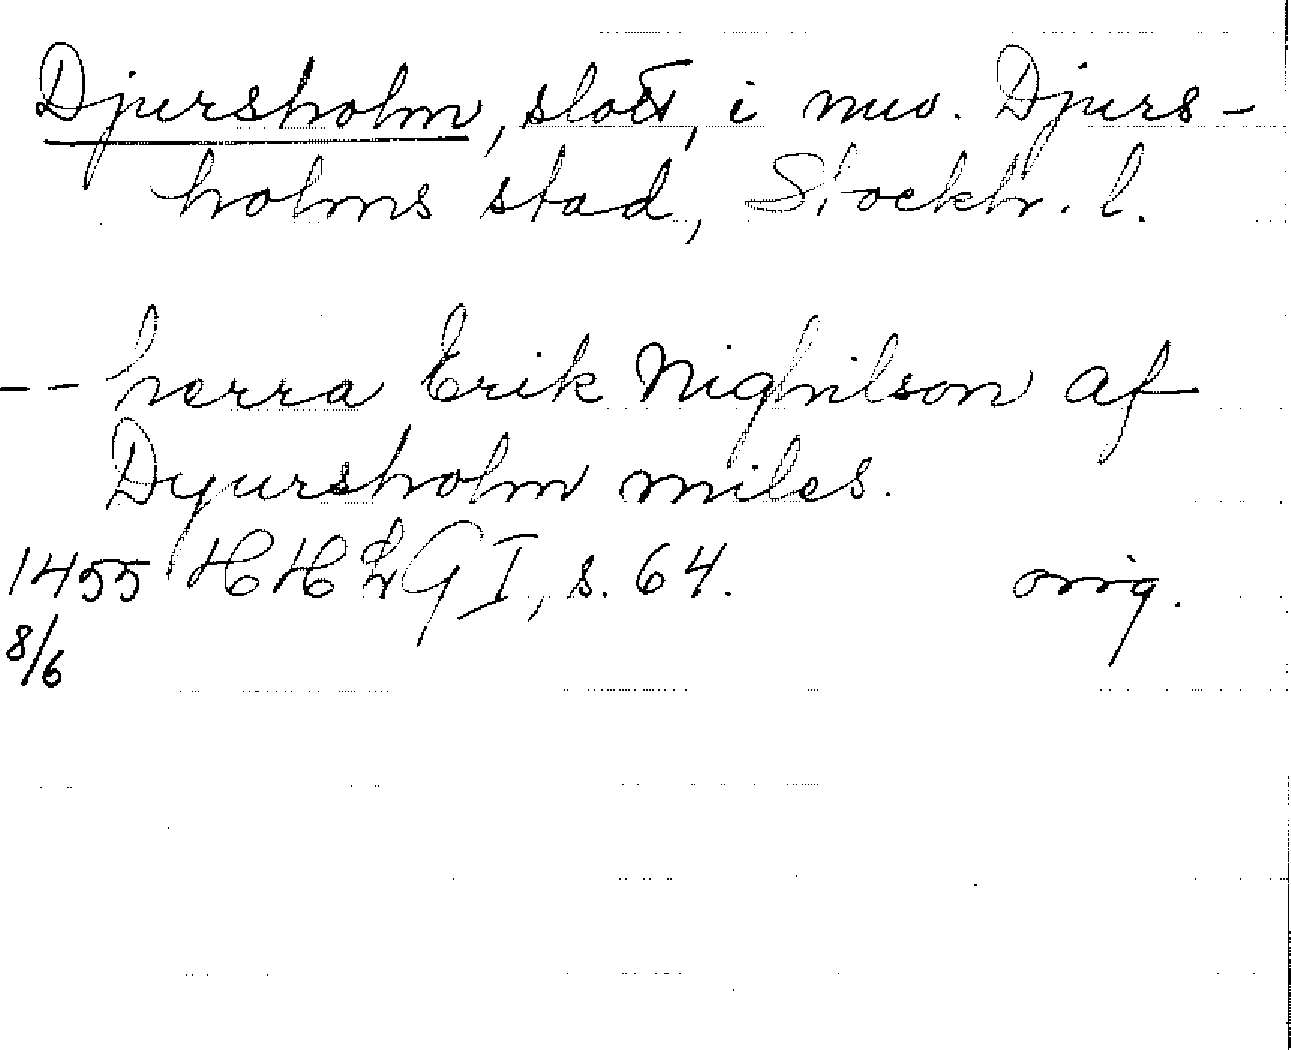 Djursholm, slott, i nuv. Djurs-
holms stad, Stockh. l.
-- herra Erik Nighilson af
Dyursholm miles.
1455 HHLG I, s. 64. orig.
8/6